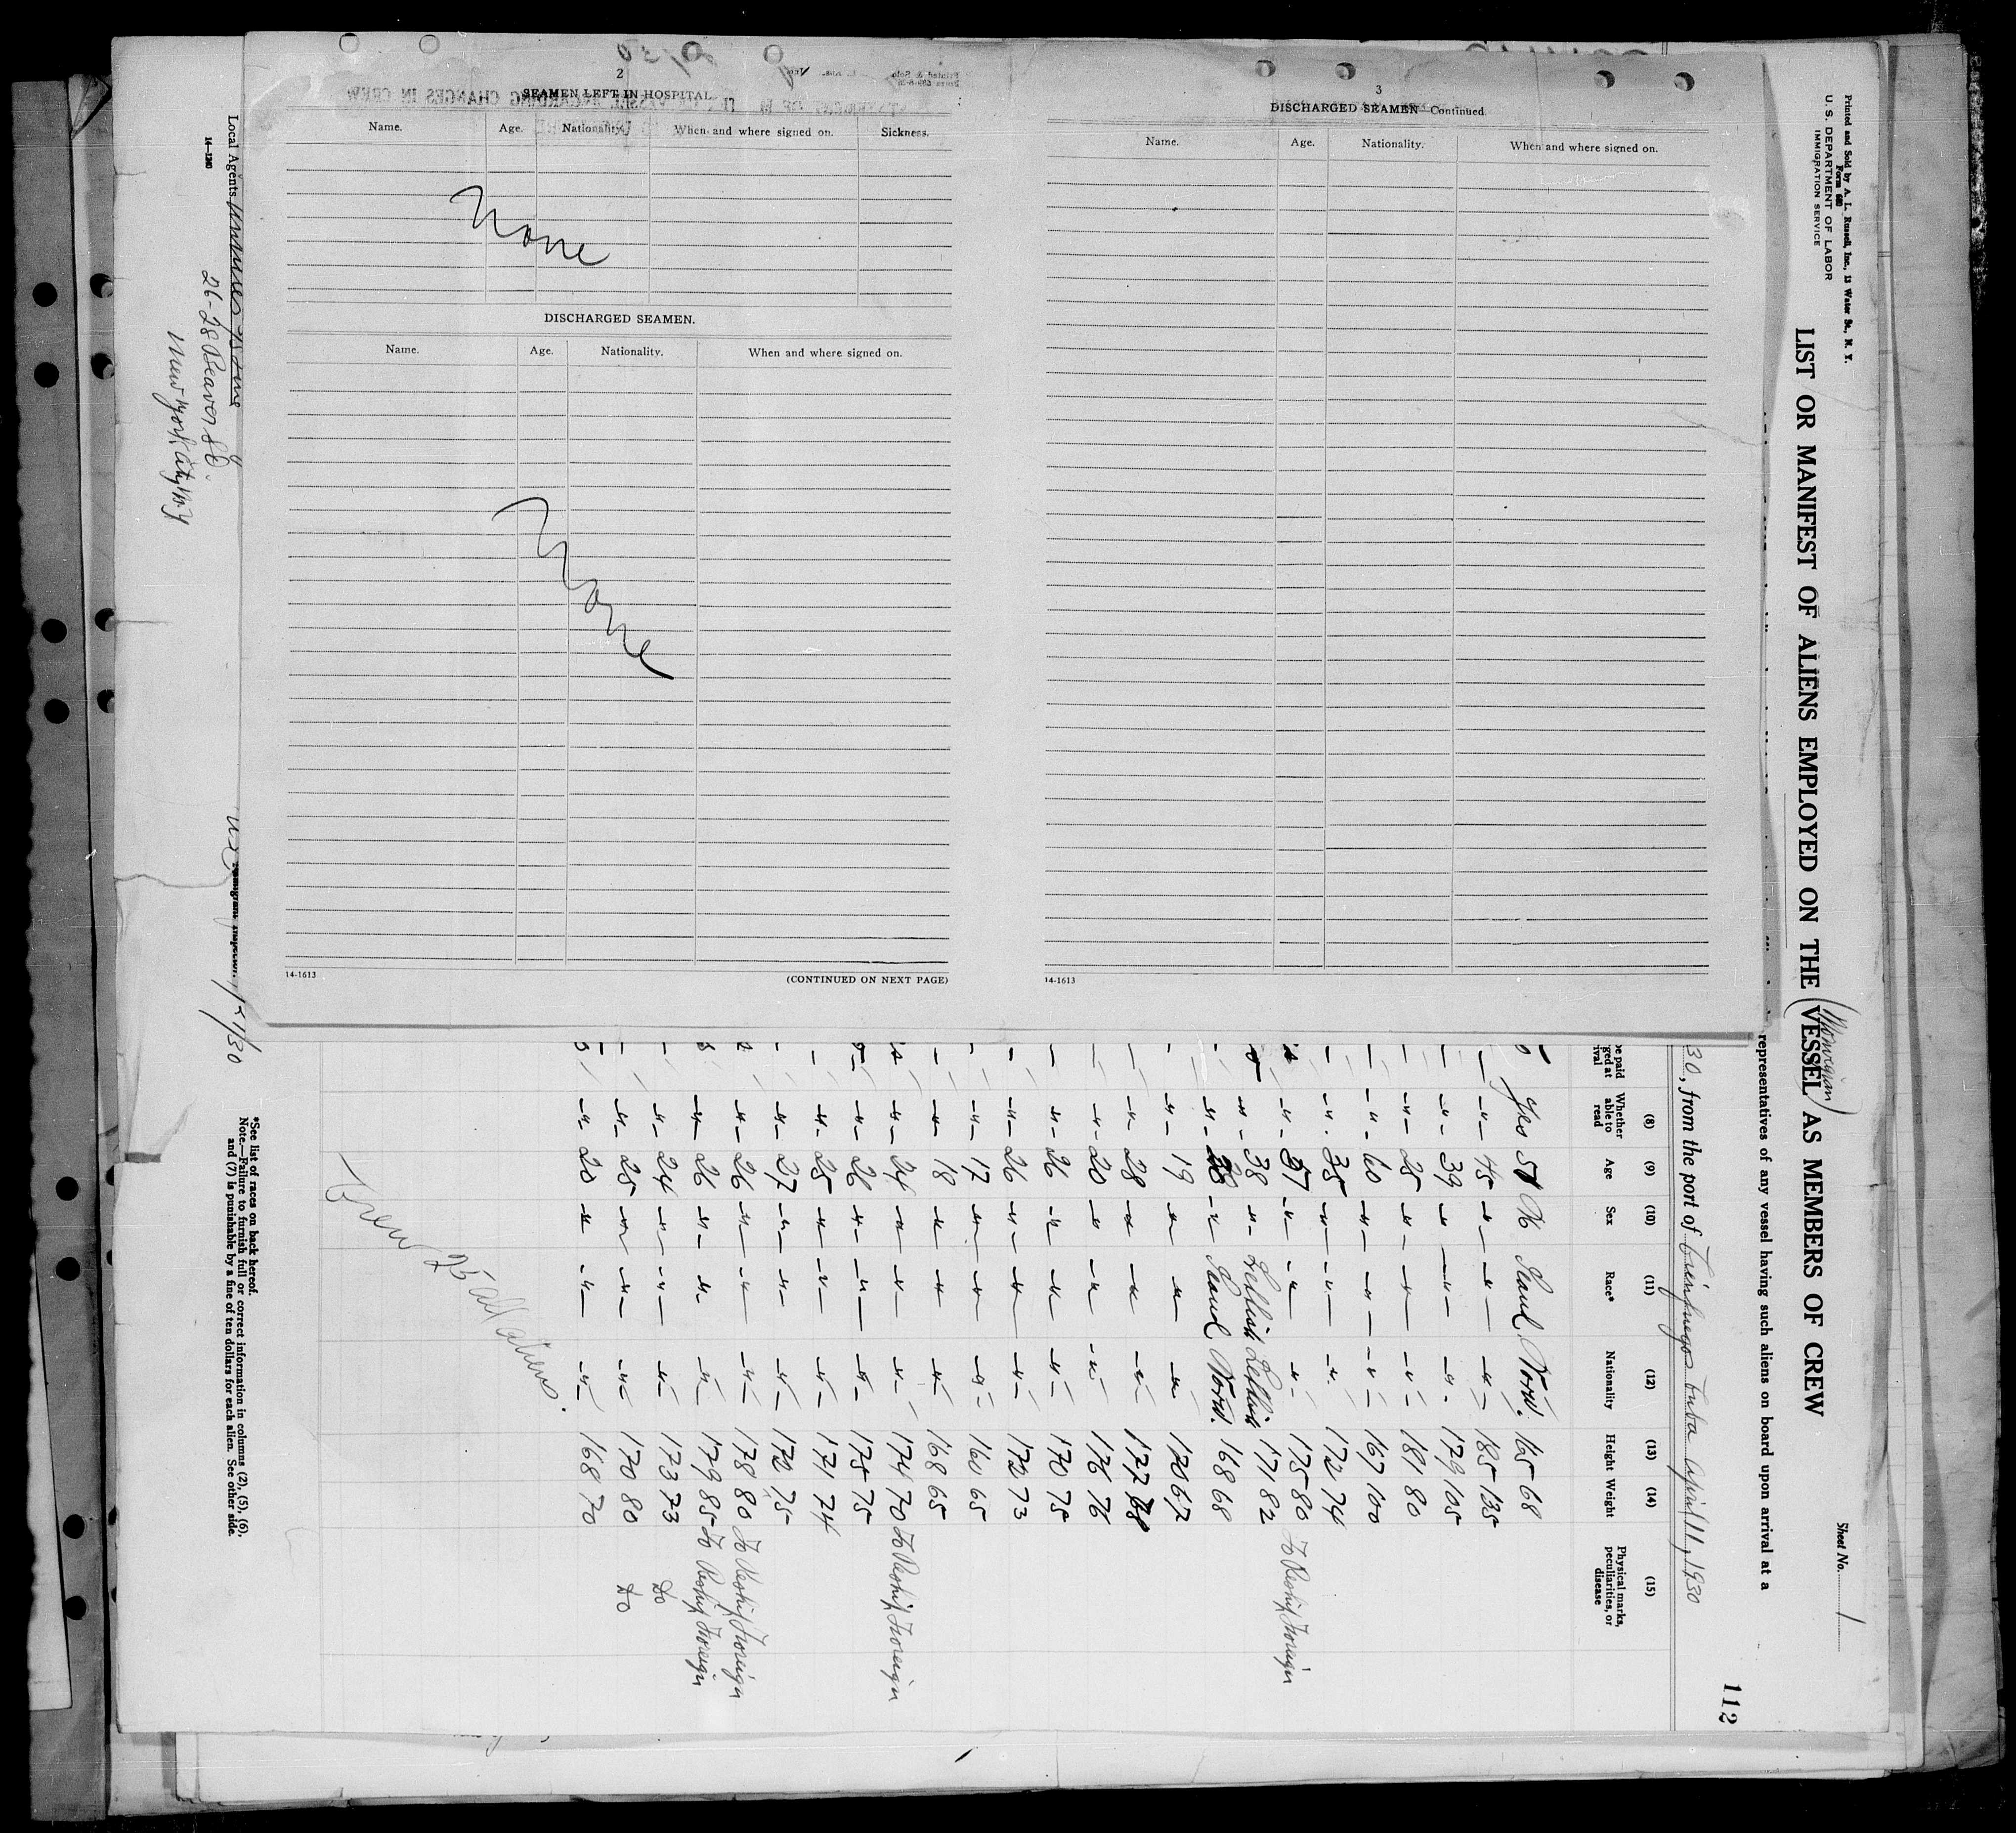 2
SEAMEN LEFT IN HOSPITAL
Name. Age. Nationality. When and where signed on. Sickness.
None
DISCHARGED SEAMEN.
Name. Age. Nationality. When and where signed on.
None
14-1613 (CONTINUED ON NEXT PAGE)
3
DISCHARGED SEAMEN—Continued.
Name. Age. Nationality. When and where signed on.
14-1613
Printed and Sold by A. L. Russell, Inc., 13 Water St., N. Y.
Form 680
U. S. DEPARTMENT OF LABOR
IMMIGRATION SERVICE
Sheet No. 1
(Norwegian)
LIST OR MANIFEST OF ALIENS EMPLOYED ON THE VESSEL AS MEMBERS OF CREW
112
representatives of any vessel having such aliens on board upon arrival at a
30, from the port of Cienfuegos Cuba April 11, 1930
(8) (9) (10) (11) (12) (13) (14) (15)
Whether able to read Age Sex Race* Nationality Height Weight Physical marks, peculiarities, or disease
Yes 51 Scand. Norw. 165 68
-"- 45 -"- -"- -"- 185 135
-"- 39 -"- -"- -"- 179 105
-"- 25 -"- -"- -"- 181 80
-"- 60 -"- -"- -"- 167 100
-"- 35 -"- -"- -"- 172 74
-"- 37 -"- -"- -"- 175 80 To Reship Foreign
-"- 38 -"- Lettish Lettish 171 82
-"- -"- Scand. Norw. 168 68
-"- 19 -"- -"- -"- 170 67
-"- 28 -"- -"- -"- 177 68
-"- 20 -"- -"- -"- 176 76
-"- 26 -"- -"- -"- 170 75
-"- 26 -"- -"- -"- 172 73
-"- 17 -"- -"- -"- 160 65
-"- 18 -"- -"- -"- 168 65
-"- 24 -"- -"- -"- 174 70 To Reship Foreign
-"- 26 -"- -"- -"- 175 75
-"- 25 -"- -"- -"- 171 74
-"- 27 -"- -"- -"- 172 75
-"- 26 -"- -"- -"- 178 80 To Reship Foreign
-"- 26 -"- -"- -"- 179 85 To Reship Foreign
-"- 24 -"- -"- -"- 173 73 do
-"- 25 -"- -"- -"- 170 80 do
-"- 20 -"- -"- -"- 168 70
Crew 25 all aliens.
*See list of races on back hereof.
Note.—Failure to furnish full or correct information in columns (2), (5), (6),
and (7) is punishable by a fine of ten dollars for each alien. See other side.
Local Agents
26-28 Beaver St.
New York City N.Y.
14—1240